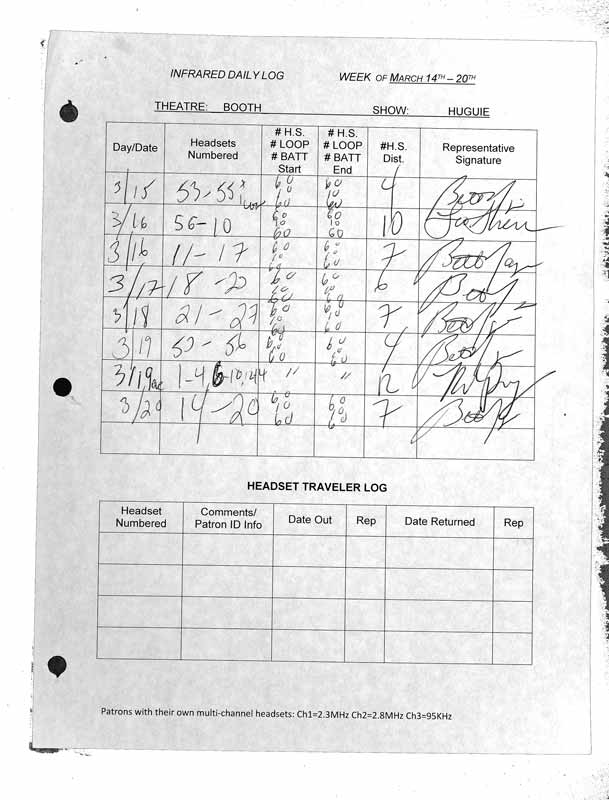 INFRARED DAILY LOG WEEK OF MARCH 14TH – 20TH
THEATRE: BOOTH SHOW: HUGUIE
Day/Date Headsets Numbered # H.S. # LOOP # BATT Start # H.S. # LOOP # BATT End #H.S. Dist. Representative Signature
3/15 53-55 60 10 60 60 10 60 4
3/16 56-10 60 10 60 60 10 60 10
3/16 11-17 60 10 60 60 10 60 7
3/17 18-20 60 10 60 60 10 60 6
3/18 21-27 60 10 60 60 10 60 7
3/19 53-56 60 10 60 60 10 60 4
3/19 1-4, 6-10, 44 " " 12
3/20 14-20 60 10 60 60 10 60 7
HEADSET TRAVELER LOG
Headset Numbered Comments/ Patron ID Info Date Out Rep Date Returned Rep
Patrons with their own multi-channel headsets: Ch1=2.3MHz Ch2=2.8MHz Ch3=95KHz